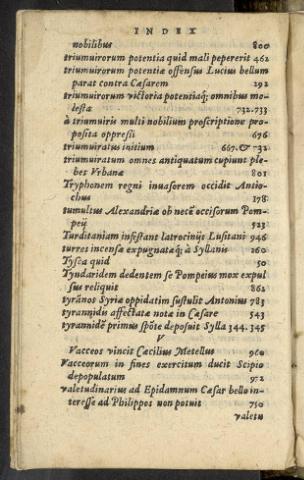 INDEX
nobilibus 800
triumuirorum potentia quid mali pepererit 462
triumuirorum potentiæ offensus Lucius bellum
parat contra Cæsarem 292
triumuirorum victoria potentiaq; omnibus mo-
lesta 732.733
à triumuiris multi nobilium proscriptione pro-
posita oppressi 676
triumuiratus initium 667.& 732
triumuiratum omnes antiquatum cupiunt ple-
bei Vrbanæ 801
Tryphonem regni inuasorem occidit Antio-
chus 178
tumultus Alexandriæ ob necē occisorum Pom-
peij 523
Turditaniam infestant latrocinijs Lusitani 946
turres incensæ expugnatæq; à Syllanis 260
Tysca quid 50
Tyndaridem dedentem se Pompeius mox expul
sus reliquit 862
tyrānos Syriæ oppidatim sustulit Antonius 783
tyrannidis affectatæ notæ in Cæsare 543
tyrannidē primus spōte deposuit Sylla 344.345
V
Vacceos vincit Cæcilius Metellus 960
Vacceorum in fines exercitum ducit Scipio
depopulatum 972
valetudinarius ad Epidamnum Cæsar bello in-
teresse ad Philippos non potuit 750
valetu